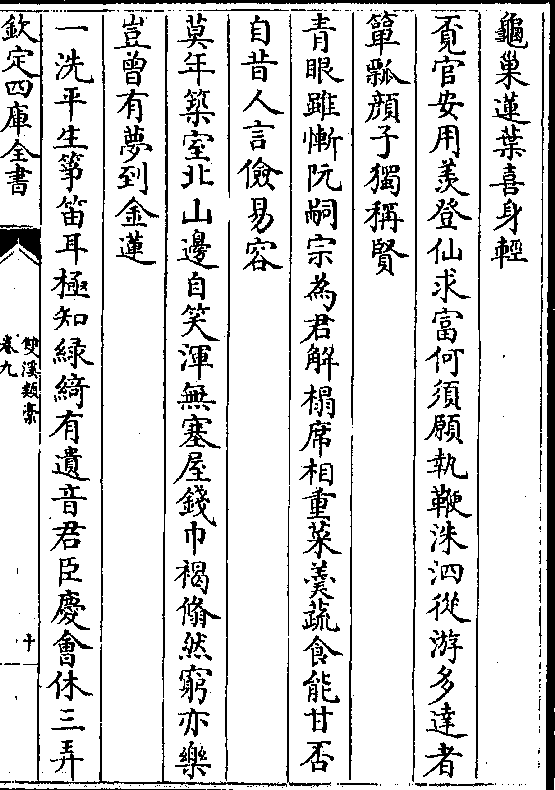 龜巢蓮葉喜身輕
覔官安用羡登仙求富何須願執鞭洙泗從游多達者
簞瓢顔子獨稱賢
青眼雖慚阮嗣宗為君解榻席相重菜羮蔬食能甘否
自昔人言儉易容
莫年築室北山邊自笑渾無塞屋錢巾褐翛然窮亦樂
豈曾有夢到金蓮
一洗平生箏笛耳極知緑綺有遺音君臣慶會休三弄
欽定四庫全書
雙溪類稾
卷九
十